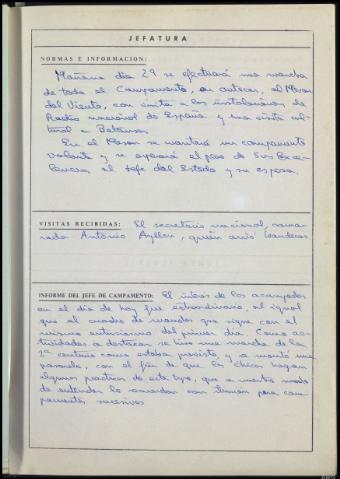 JEFATURA
NORMAS E INFORMACION:
Mañana dia 29 se efectuará una marcha
de todo el Campamento, en autocar, al Meson
del Viento, con visita a las instalaciones de
Radio nacional de España y una visita cul-
tural a Betanzos.
En el Meson se montará un campamento
volante y se esperará el paso de Sus Exce-
lencias el Jefe del Estado y su esposa.
VISITAS RECIBIDAS: El secretario nacional, cama-
rada Antonio Ayllon, quién arrió banderas
INFORME DEL JEFE DE CAMPAMENTO: El interes de los acampados
en el dia de hoy fue extraordinario, al igual
que el cuadro de mandos que sigue con el
mismo entusiasmo del primer dia. Como ac-
tividades a destacar se hizo una marcha de la
2ª centuria como estaba previsto, y se montó una
pasarela, con el fin de que los chicos hagan
algunas practicas de este tipo, que a nuestro modo
de entender lo anterior con tension para cam-
pamentos sucesivos